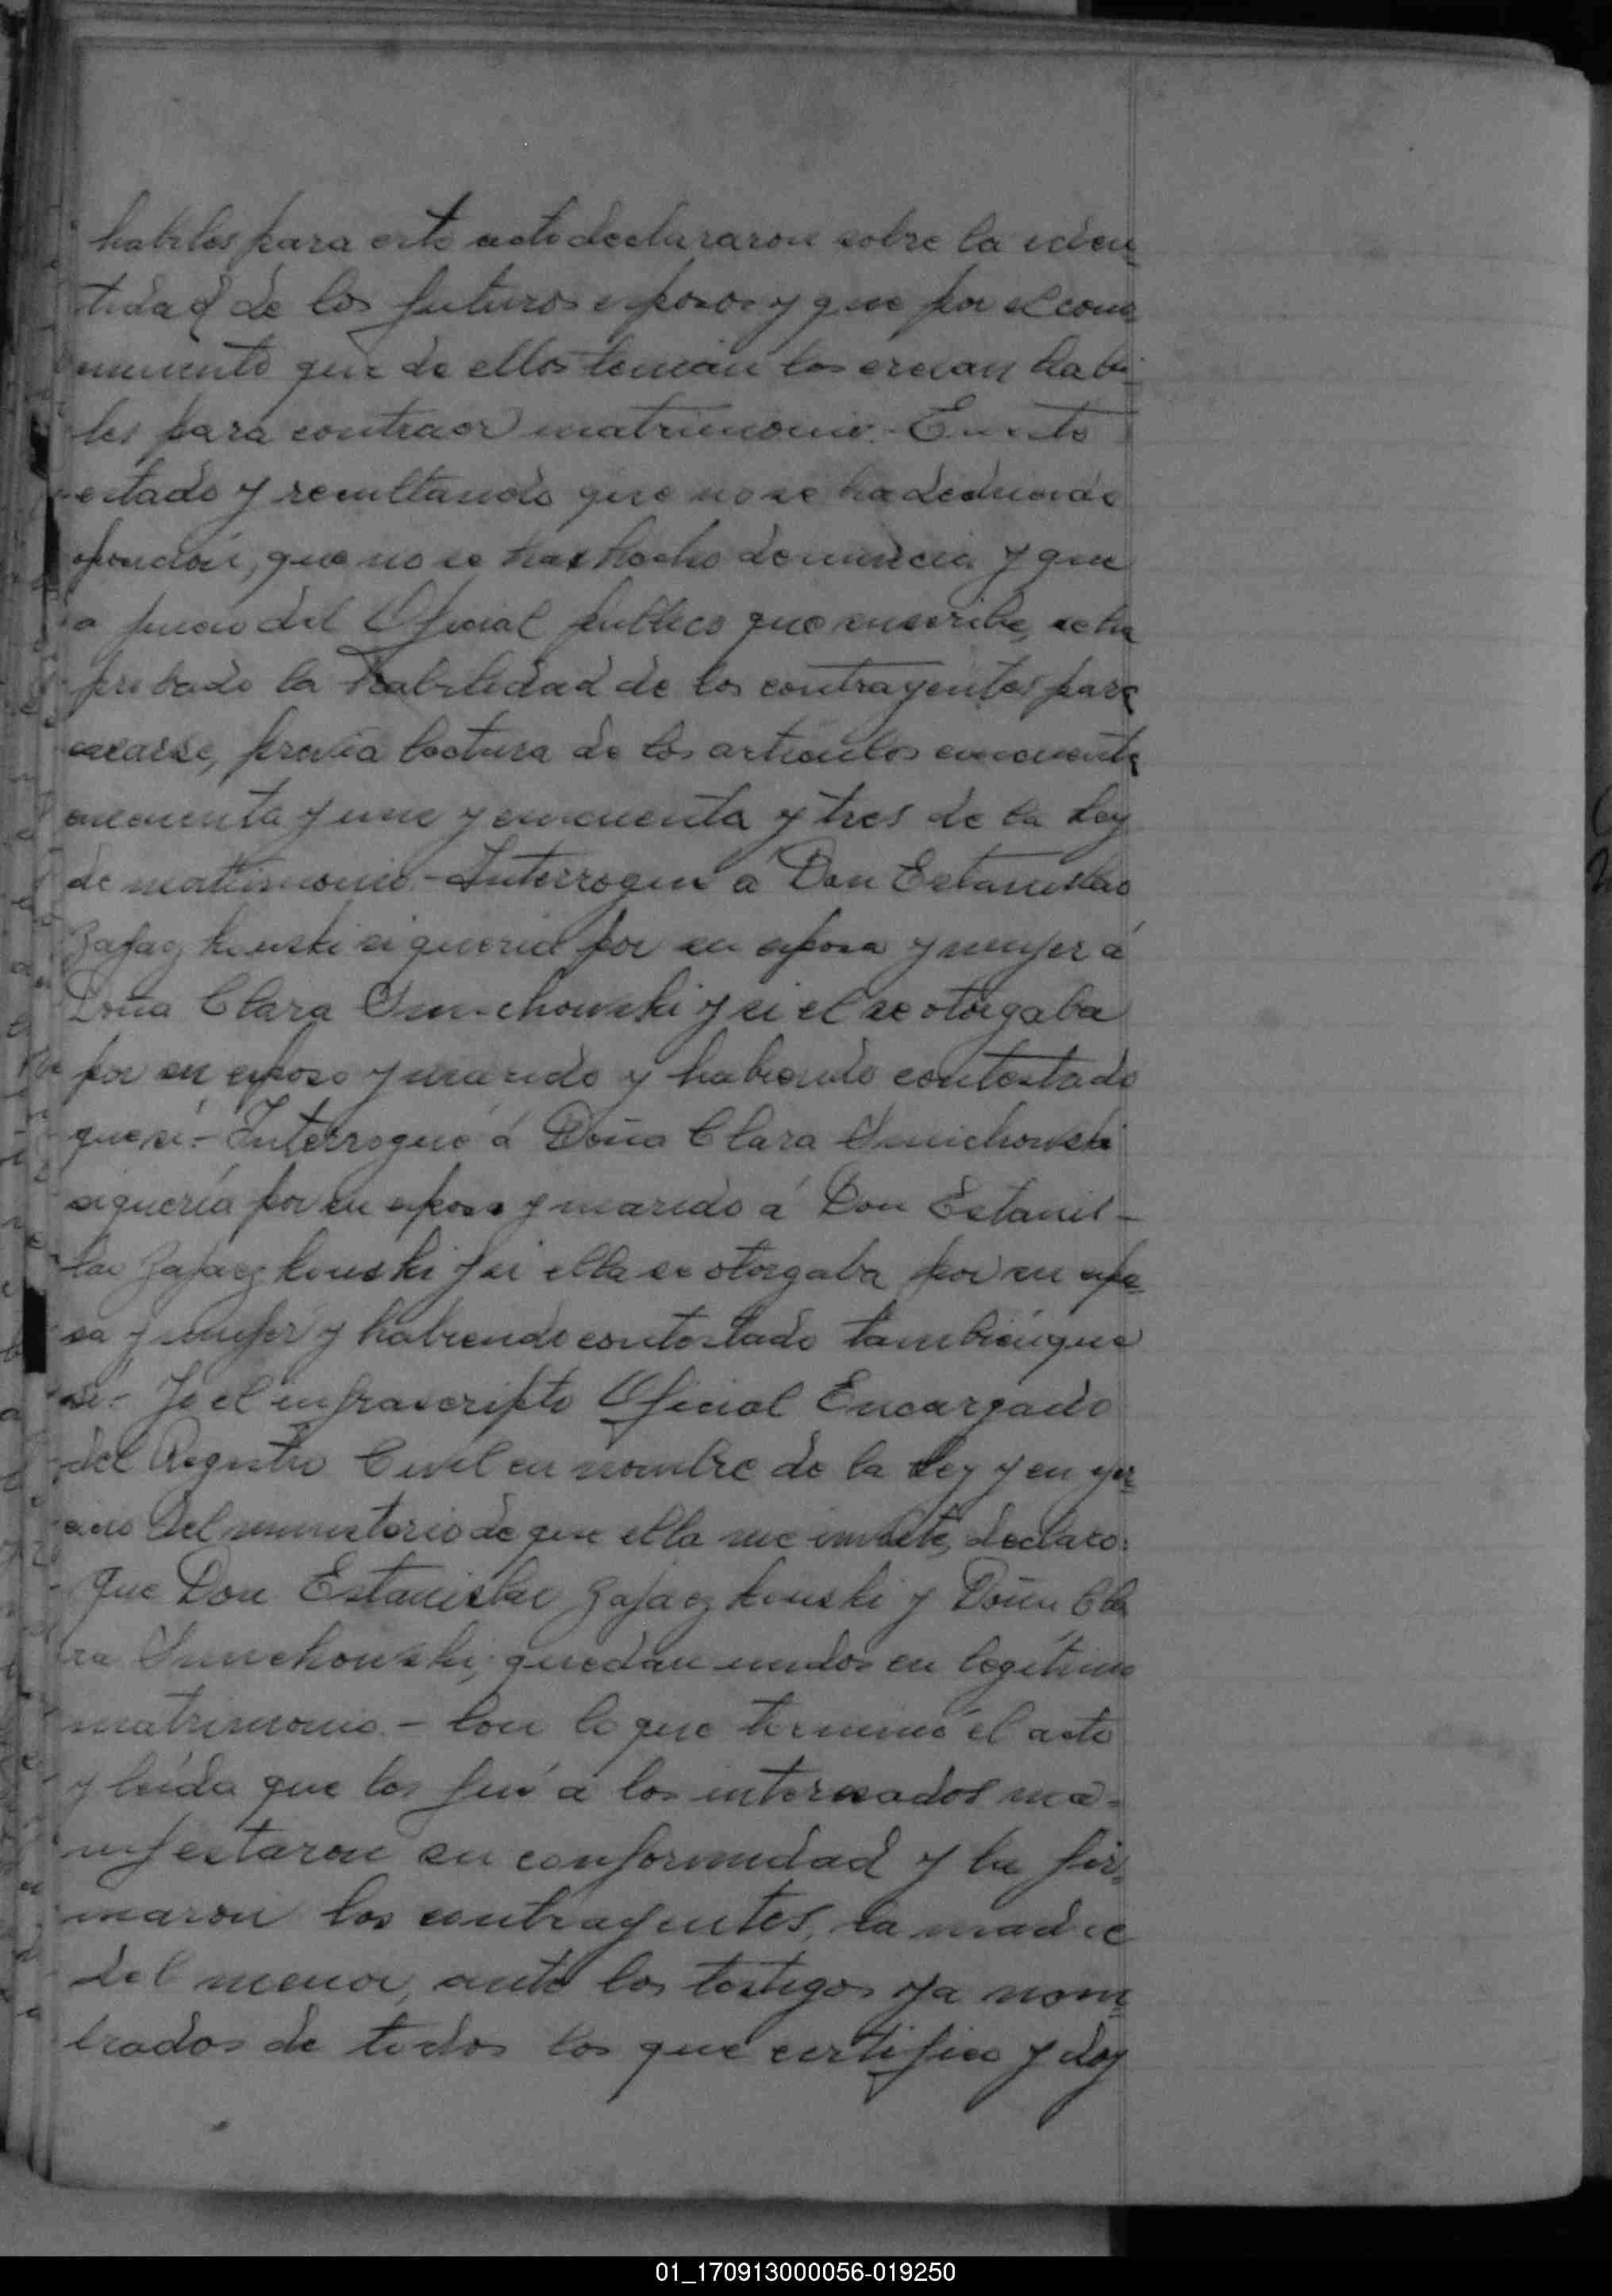 habiles para este acto declararon sobre la iden
tidad de los futuros esposos y que por el cono
cimiento que de ellos tenian los creian habi-
les para contraer matrimonio. - En este
estado y resultando que no se ha deducido
oposición, que no se ha hecho denuncia y que
a juicio del Oficial público que suscribe, se ha
probado la habilidad de los contrayentes para
casarse, previa lectura de los articulos cincuenta
cincuenta y uno y cincuenta y tres de la Ley
de matrimonio. - Interrogué a Don Estanislao
Zajaczkouski si queria por su esposa y mujer á
Doña Clara Smichowski y si el se otorgaba
por su esposo y marido y habiendo contestado
que sí. - Interrogué á Doña Clara Smichowski
si quería por su esposo y marido á Don Estanis-
lao Zajaczkouski y si ella se otorgaba por su espo-
sa y mujer y habiendo contestado también que
sí. - Yo el infrascripto Oficial Encargado
del Registro Civil en nombre de la Ley y en ejer
cicio del ministerio de que ella me inviste, declaro:
Que Don Estanislao Zajaczkouski y Doña Cla
ra Smichowski, quedan unidos en legítimo
matrimonio. - Con lo que terminó el acto
y leída que les fué á los interesados ma-
nifestaron su conformidad y la fir-
maron los contrayentes, la madre
del menor, ante los testigos ya nom
brados de todos los que certifico y doy
01_170913000056-019250